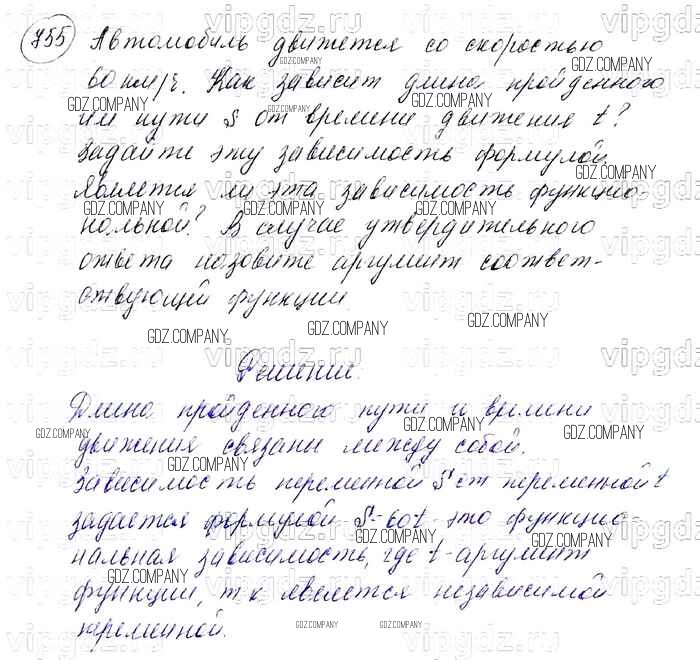 755 Автомобиль движется со скоростью
60 км/ч. Как зависит длина пройденного
им пути S от времени движения t?
Задайте эту зависимость формулой.
Является ли эта зависимость функцио-
нальной? В случае утвердительного
ответа назовите аргумент соответ-
ствующей функции
Решение.
Длина пройденного пути и время
движения связаны между собой.
Зависимость переменной S от переменной t
задается формулой S=60t - это функцио-
нальная зависимость, где t - аргумент
функции, т к является независимой
переменной.